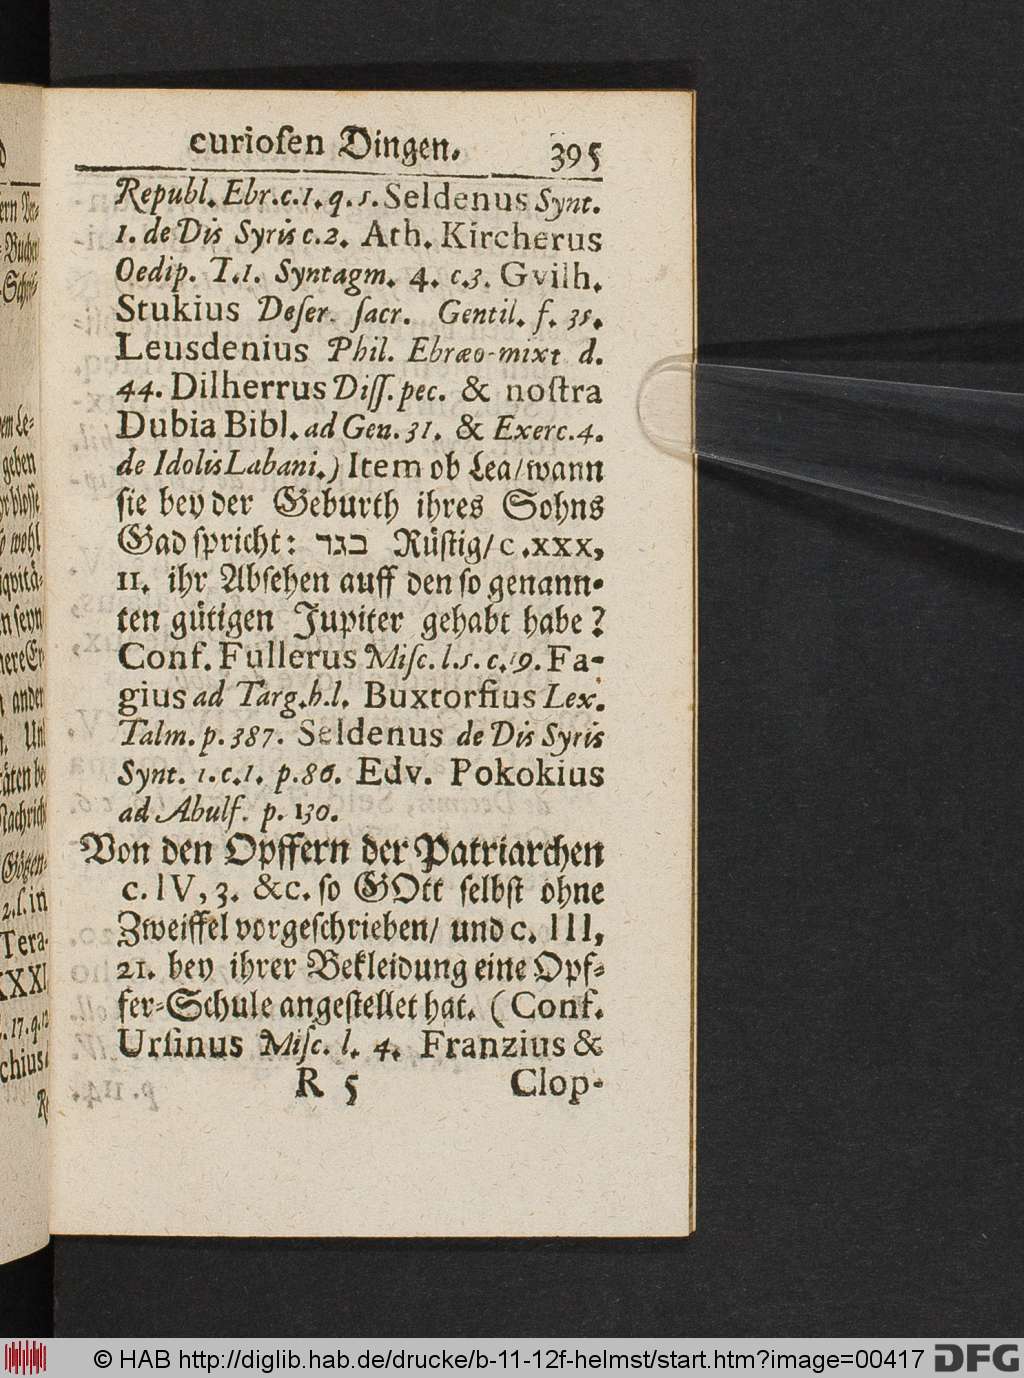 curiosen Dingen. 395
Republ. Ebr. c. 1. q. 5. Seldenus Synt.
1. de Dis Syris c. 2. Ath. Kircherus
Oedip. T. 1. Syntagm. 4. c. 3. Gvilh.
Stukius Deſer. ſacr. Gentil. f. 35.
Leusdenius Phil. Ebræo-mixt d.
44. Dilherrus Diſſ. pec. & noſtra
Dubia Bibl. ad Gen. 31. & Exerc. 4.
de Idolis Labani.) Item ob Lea/ wann
ſie bey der Geburth ihres Sohns
Gad ſpricht: בגד Rüſtig/ c. xxx,
11. ihr Abſehen auff den ſo genann-
ten gütigen Jupiter gehabt habe?
Conf. Fullerus Miſc. l. 5. c. 19. Fa-
gius ad Targ. h. l. Buxtorfius Lex.
Talm. p. 387. Seldenus de Dis Syris
Synt. 1. c. 1. p. 86. Edv. Pokokius
ad Abulf. p. 130.
Von den Opffern der Patriarchen
c. IV, 3. &c. ſo GOtt ſelbſt ohne
Zweiffel vorgeſchrieben/ und c. III,
21. bey ihrer Bekleidung eine Opf-
fer-Schule angeſtellet hat. (Conf.
Urſinus Miſc. l. 4. Franzius &
R 5 Clop-
© HAB http://diglib.hab.de/drucke/b-11-12f-helmst/start.htm?image=00417 DFG